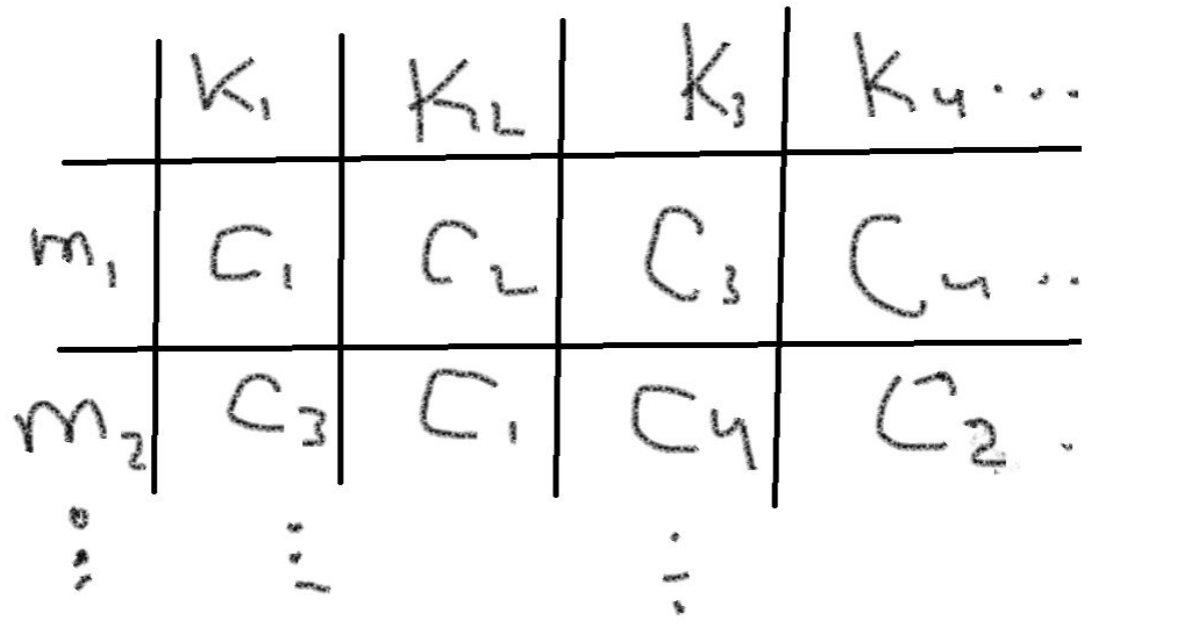 K₁ K₂ K₃ K₄ ...
m₁ C₁ C₂ C₃ C₄ ...
m₂ C₃ C₁ C₄ C₂ .
⋮ ⋮ ⋮